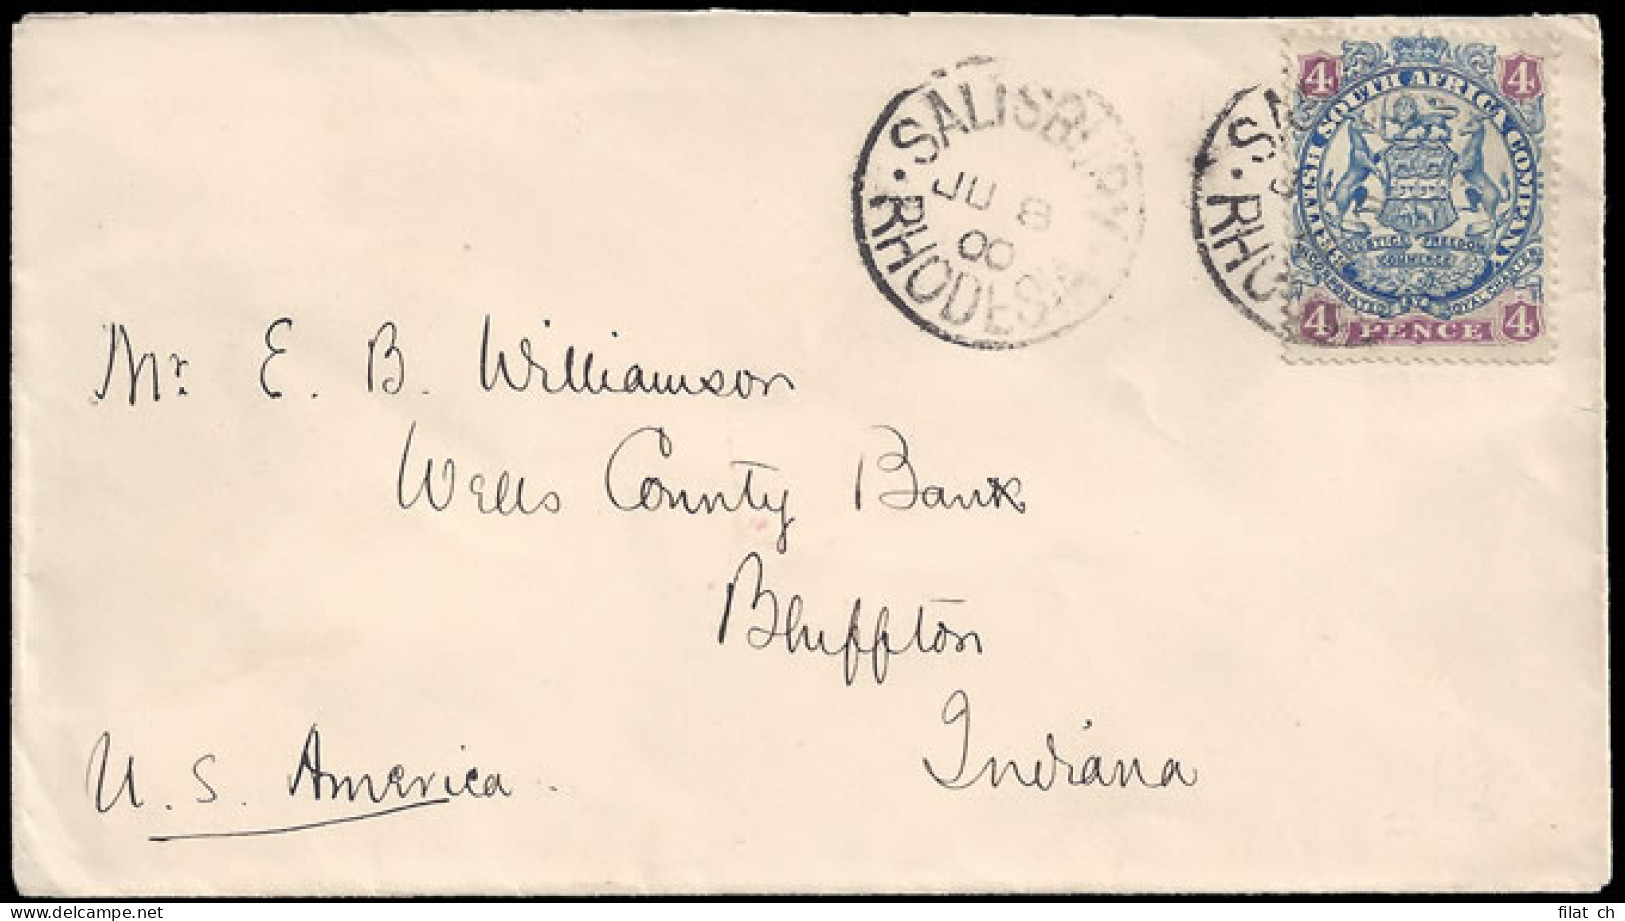 SALISBURY
JU 8
00
RHODESIA
S
RHO
4 4
BRITISH SOUTH AFRICA COMPANY
JUSTICE FREEDOM
COMMERCE
INCORPORATED BY ROYAL CHARTER
4 PENCE 4
Mr. E. B. Williamson
Wells County Bank
Bluffton
Indiana
U. S. America.
filat ch